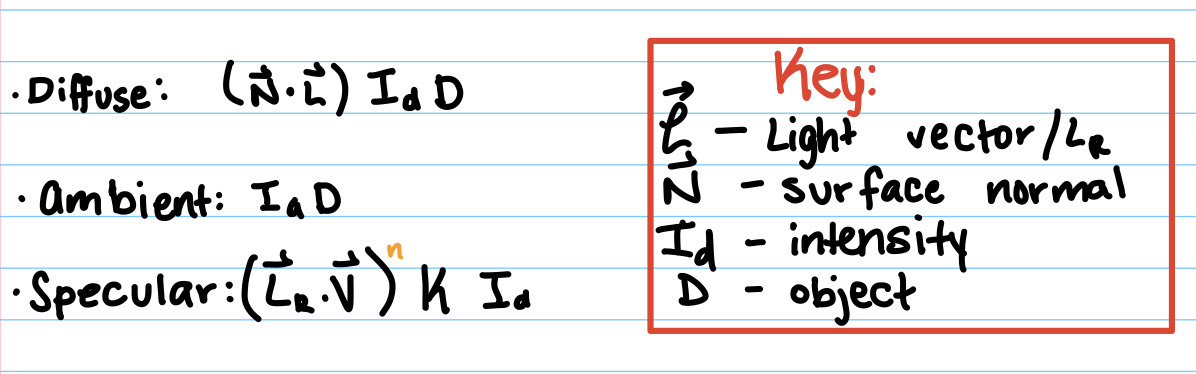 · Diffuse: (N⃗·L⃗) I_d D
· Ambient: I_a D
· Specular: (L⃗_R·V⃗)^n K I_d
Key:
L⃗ – Light vector/L_R
N⃗ – surface normal
I_d – intensity
D – object